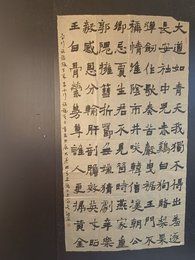 大道如青天我獨不得出羞逐
長安社中兒赤雞白狗賭梨栗
彈劍作歌奏苦聲曳裾王門不
稱情淮陰市井笑韓信漢朝公
卿忌賈生君不見昔時燕家重
郭隗擁篲折節無嫌猜劇辛樂
毅感恩分輸肝剖膽效英才昭
王白骨縈蔓草誰人更掃黃金